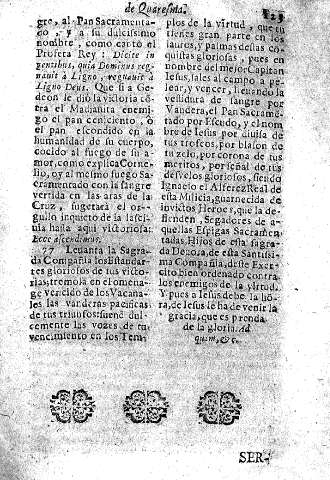 de Quaresma.
gre, al Pan Sacramenta-
do, y à su dulcissimo
nombre, como cantò el
Profeta Rey: Dicite in
gentibus, quia Dominus reg-
nauit à Ligno, regnauit à
Ligno Deus. Que si a Ge-
deon le diò la victoria cô-
tra el Madianita enemi-
go el pan ceniciento, ò el
pan escondido en la
humanidad de su cuerpo,
cocido al fuego de su a-
mor, como explica Corne-
lio, oy al mesmo fuego Sa-
cramentado con la sangre
vertida en las aras de la
Cruz, sugetarà el or-
gullo inquieto de la lasci-
uia hasta aqui victoriosa:
Ecce ascendimus.
77 Leuanta la Sagra-
da Compañia los Estandar-
tes gloriosos de tus victo-
rias, tremola en el omena-
ge vencido de los Vacana-
les las vanderas pacificas
de tus triunfos: suene dul-
cemente las vozes de tu
vencimiento en los Tem-
plos de la virtud, que tu
tienes gran parte en los
laures, y palmas destas cô-
quistas gloriosas, pues en
nombre del mejor Capitan
Iesus, sales al campo a pe-
lear, y vencer, lleuando la
vestidura de sangre por
Vandera, el Pan Sacrame-
tado por Escudo, y el nom-
bre de Iesus por diuisa de
tus trofeos, por blason de
tu zelo, por corona de tus
meritos, por señal de tus
desvelos gloriosos, siendo
Ignacio el Alferez Real de
esta Milicia, guarnecida de
inuictos Heroes, que la de-
fienden, Segadores de a-
quellas Espigas Sacramen-
tadas, Hijos de esta sagra-
da Denora, de esta Santissi-
ma Compañia, deste Exer-
cito bien ordenado contra
los enemigos de la virtud.
Y pues a Iesus debe la hô-
ra, de Iesus le ha de venir la
gracia, que es prenda
de la gloria. Ad
quam, &c.
SER-